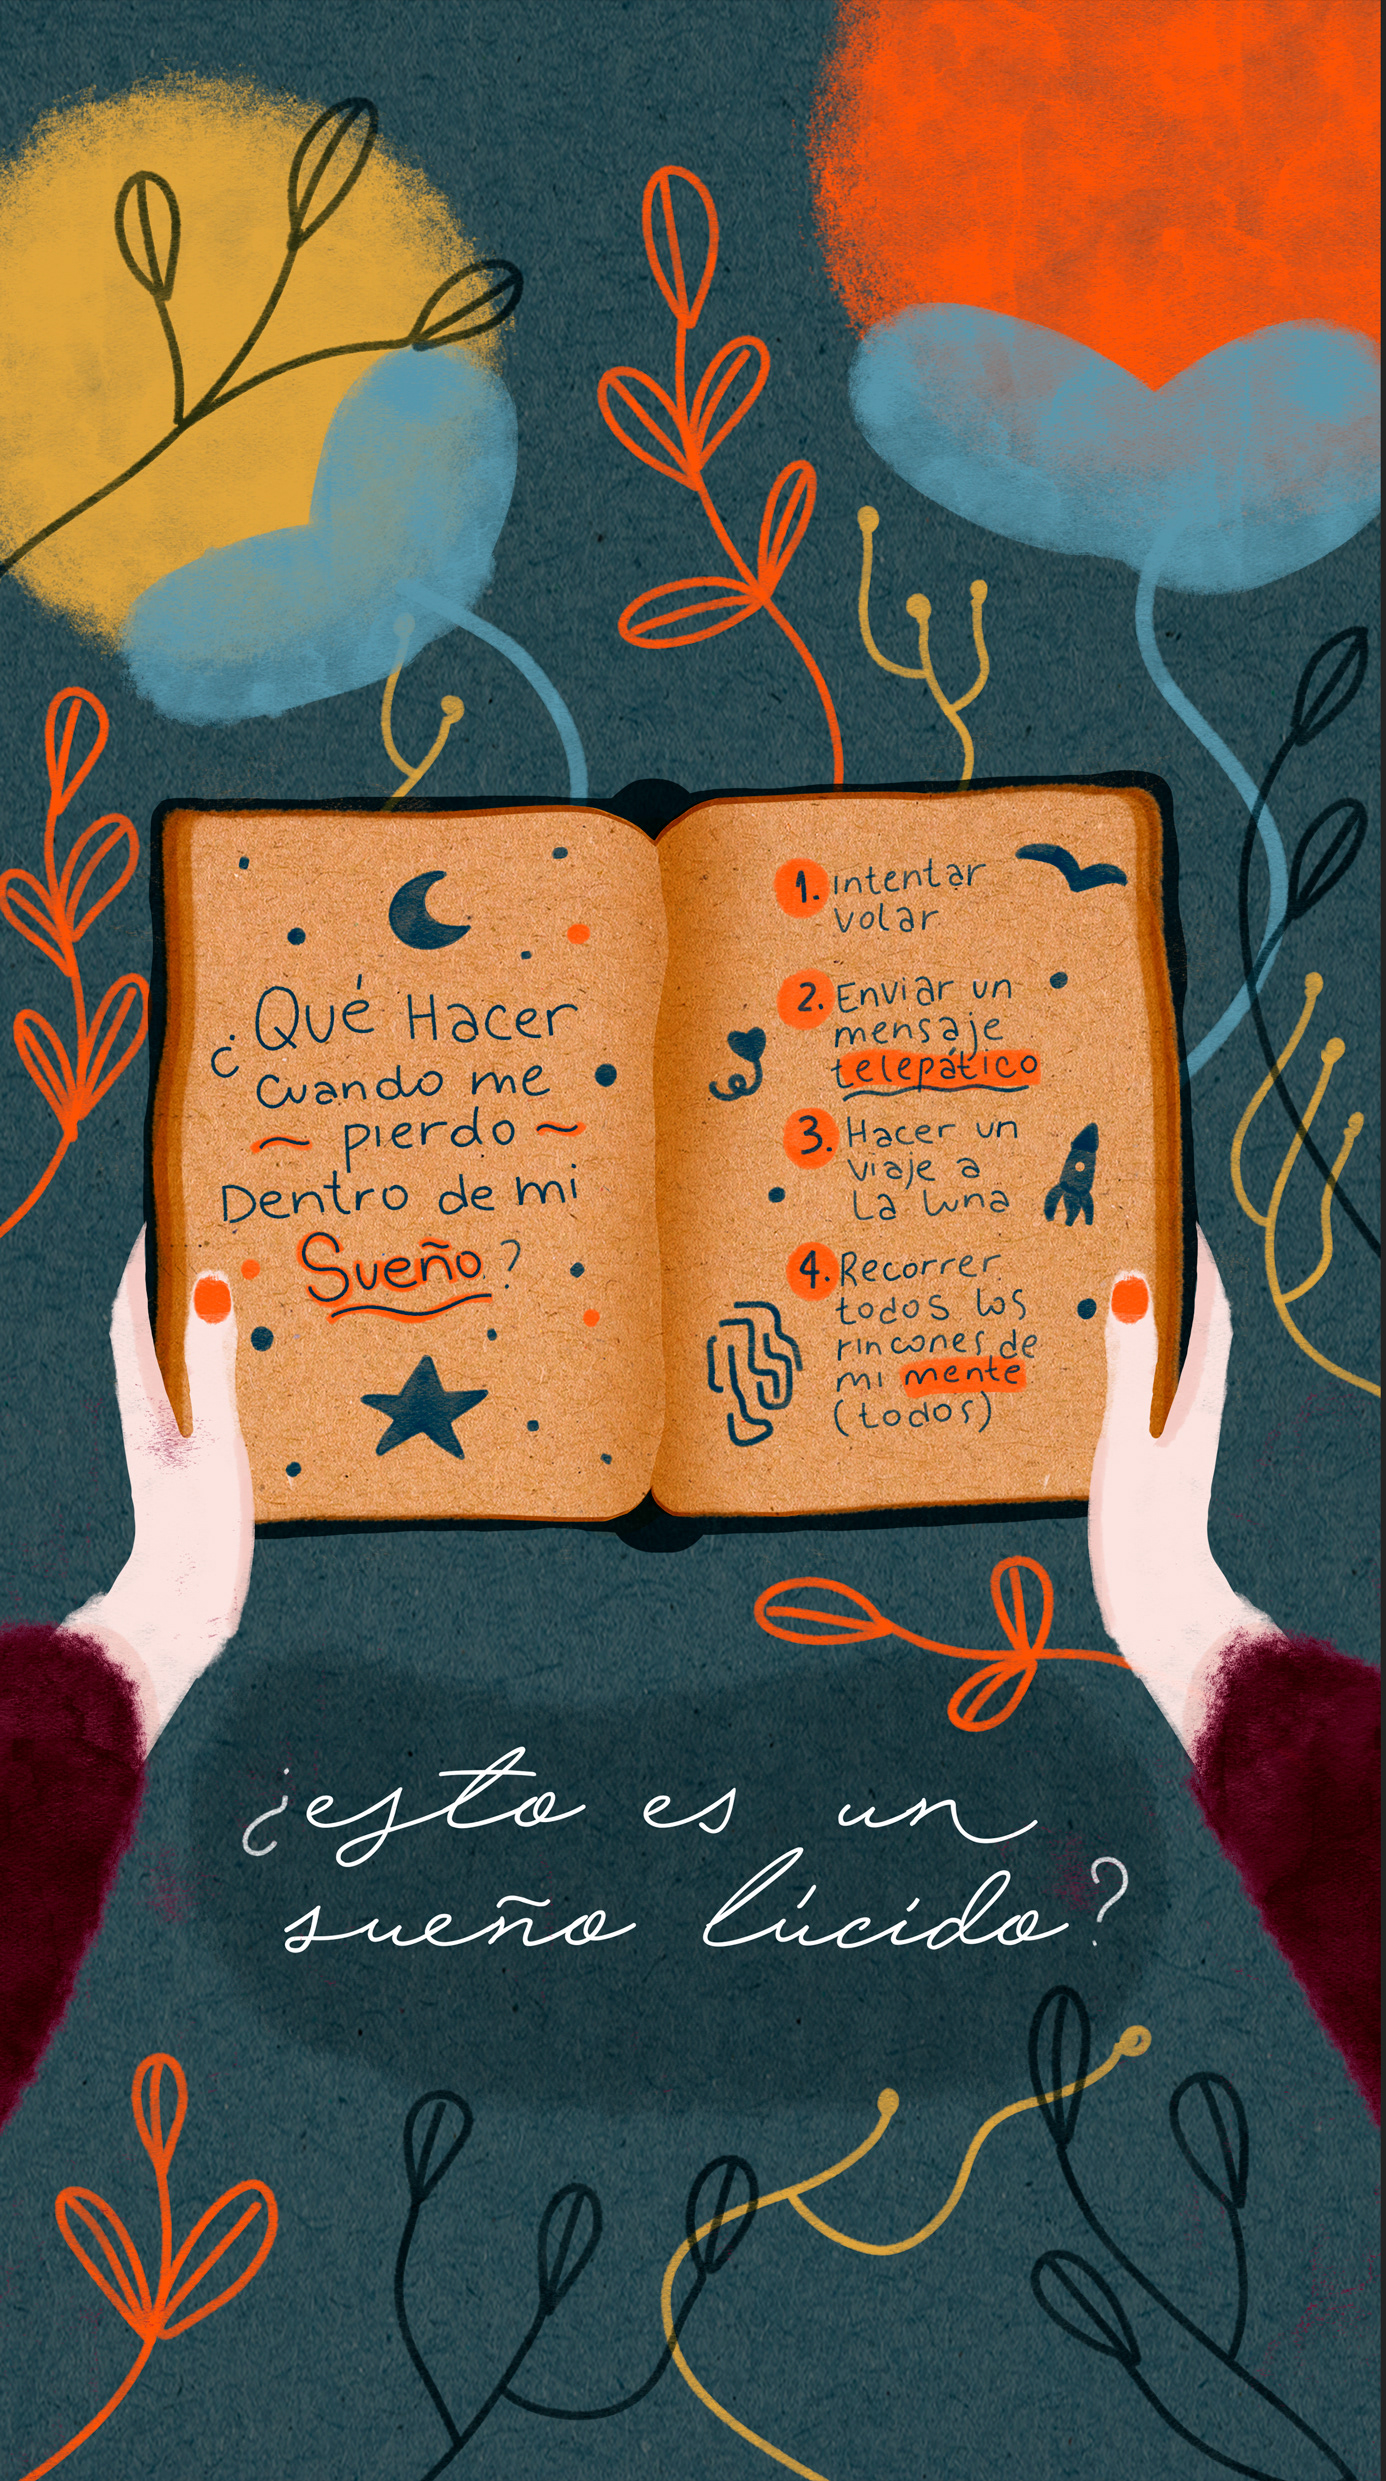 ¿Qué Hacer
cuando me
~ pierdo ~
Dentro de mi
Sueño?
1. intentar
volar
2. Enviar un
mensaje
telepático
3. Hacer un
viaje a
La luna
4. Recorrer
todos los
rincones de
mi mente
(todos)
¿esto es un
sueño lúcido?